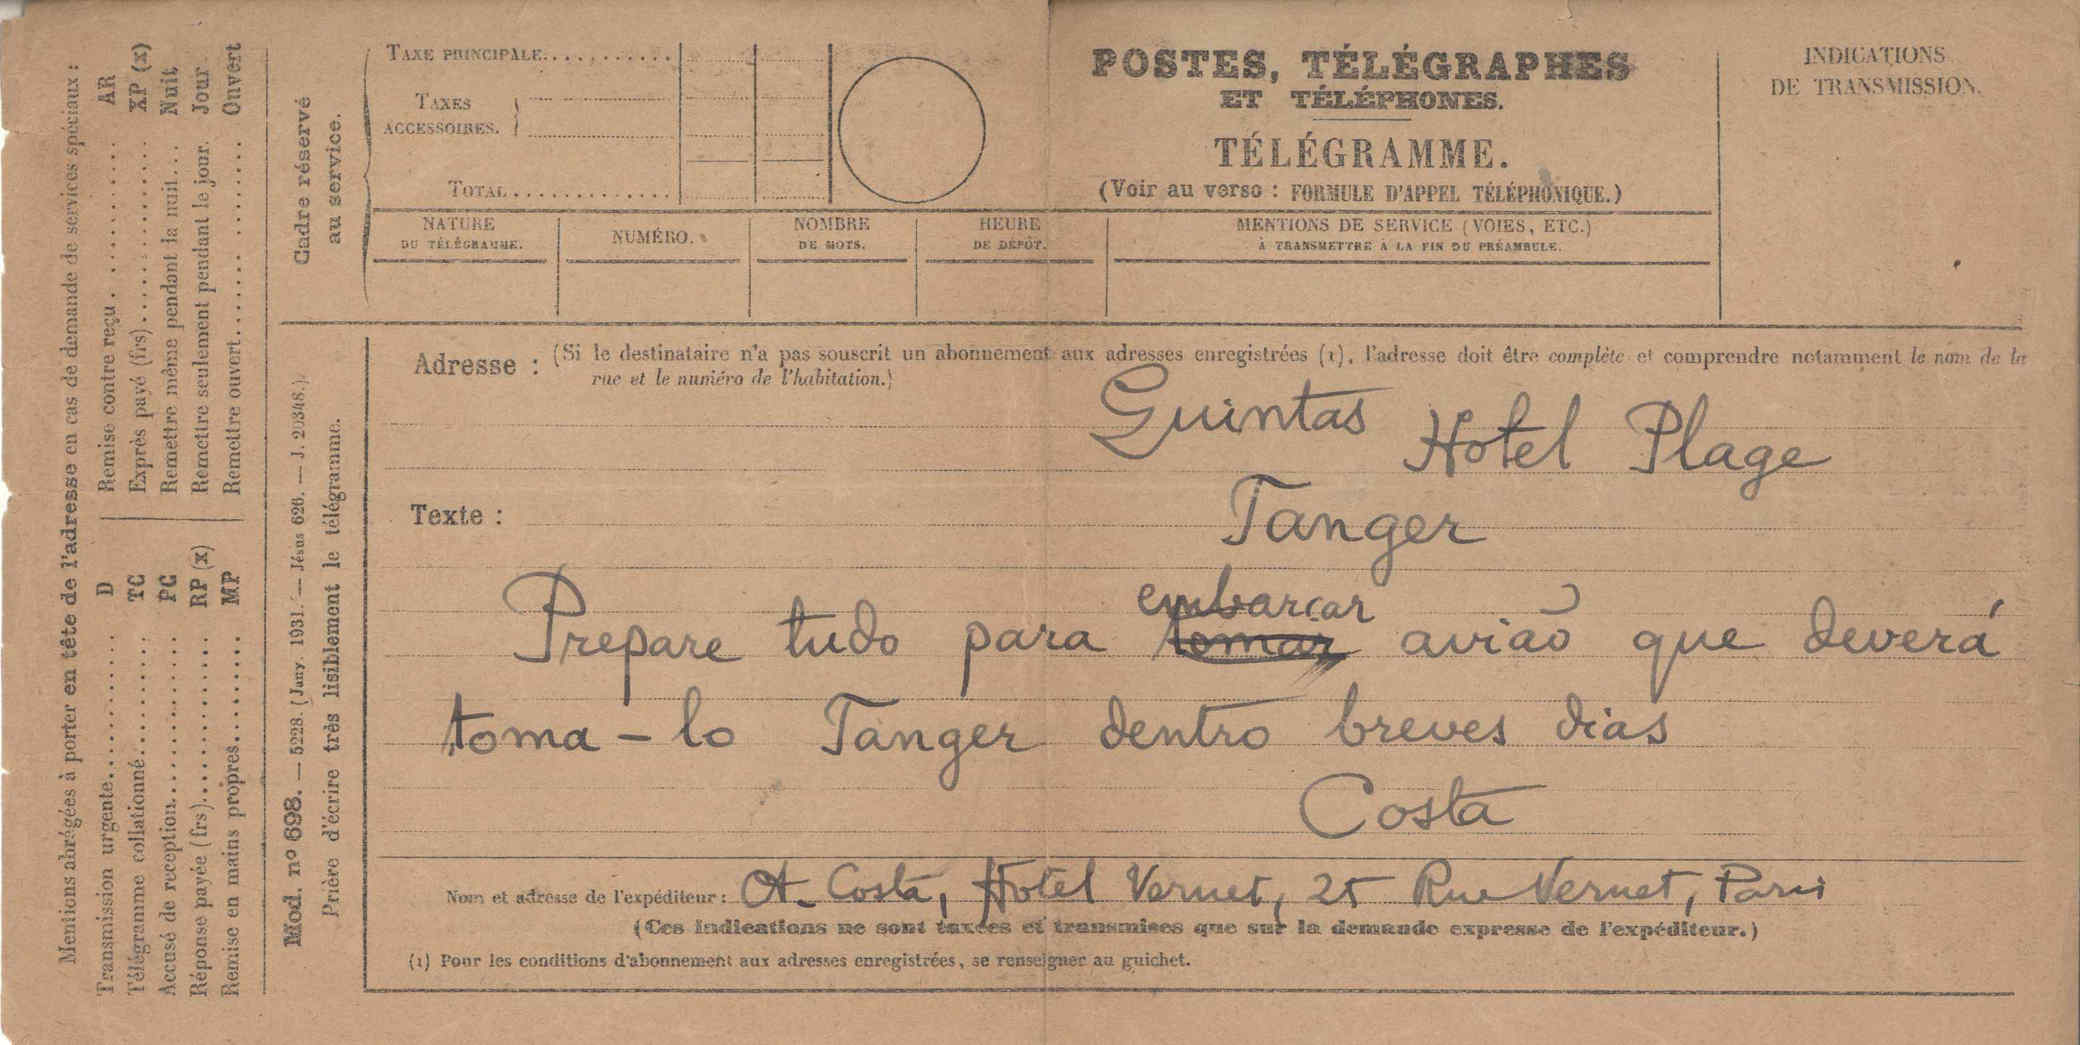 Mentions abrégées à porter en tête de l'adresse en cas de demande de services spéciaux :
Transmission urgente.......... D
Télégramme collationné.......... TC
Accusé de reception.......... PC
Réponse payée (frs).......... RP (x)
Remise en mains propres.......... MP
Remise contre reçu.......... AR
Exprès payé (frs).......... XP (x)
Remettre même pendant la nuit... Nuit
Remettre seulement pendant le jour. Jour
Remettre ouvert.......... Ouvert
Mod. nº 698. — 5228. (Janv. 1931. — Jésus 626. — J. 20348.)
Prière d'écrire très lisiblement le télégramme.
Cadre réservé
au service.
TAXE PRINCIPALE...........
TAXES
ACCESSOIRES.
TOTAL.............
POSTES, TÉLÉGRAPHES
ET TÉLÉPHONES.
TÉLÉGRAMME.
(Voir au verso : FORMULE D'APPEL TÉLÉPHONIQUE.)
INDICATIONS
DE TRANSMISSION.
NATURE
DU TÉLÉGRAMME.
NUMÉRO.
NOMBRE
DE MOTS.
HEURE
DE DÉPÔT.
MENTIONS DE SERVICE (VOIES, ETC.)
À TRANSMETTRE À LA FIN DU PRÉAMBULE.
Adresse : (Si le destinataire n'a pas souscrit un abonnement aux adresses enregistrées (1), l'adresse doit être complète et comprendre notamment le nom de la
rue et le numéro de l'habitation.)
Guintas Hotel Plage
Texte :
Tanger
embarcar
Prepare tudo para tomar avião que deverá
toma-lo Tanger dentro breves dias
Costa
Nom et adresse de l'expéditeur : A. Costa, Hotel Vernet, 25 Rue Vernet, Paris
(Ces indications ne sont taxées et transmises que sur la demande expresse de l'expéditeur.)
(1) Pour les conditions d'abonnement aux adresses enregistrées, se renseigner au guichet.